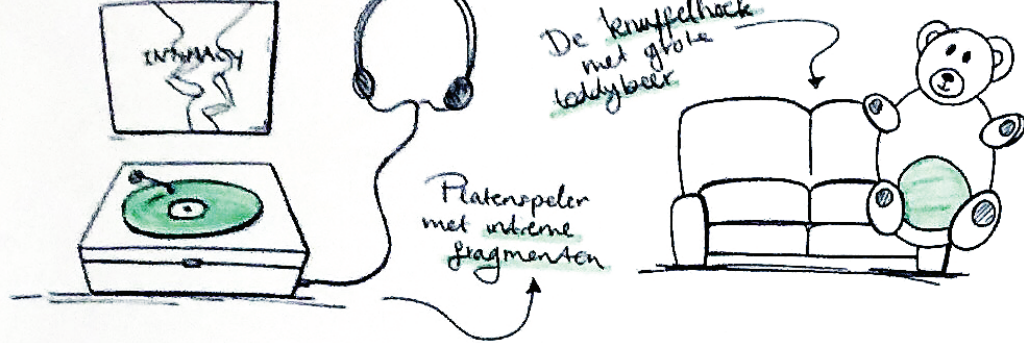 INTIMACY
De knuffelhoek
met grote
teddybeer
Platenspeler
met intieme
fragmenten